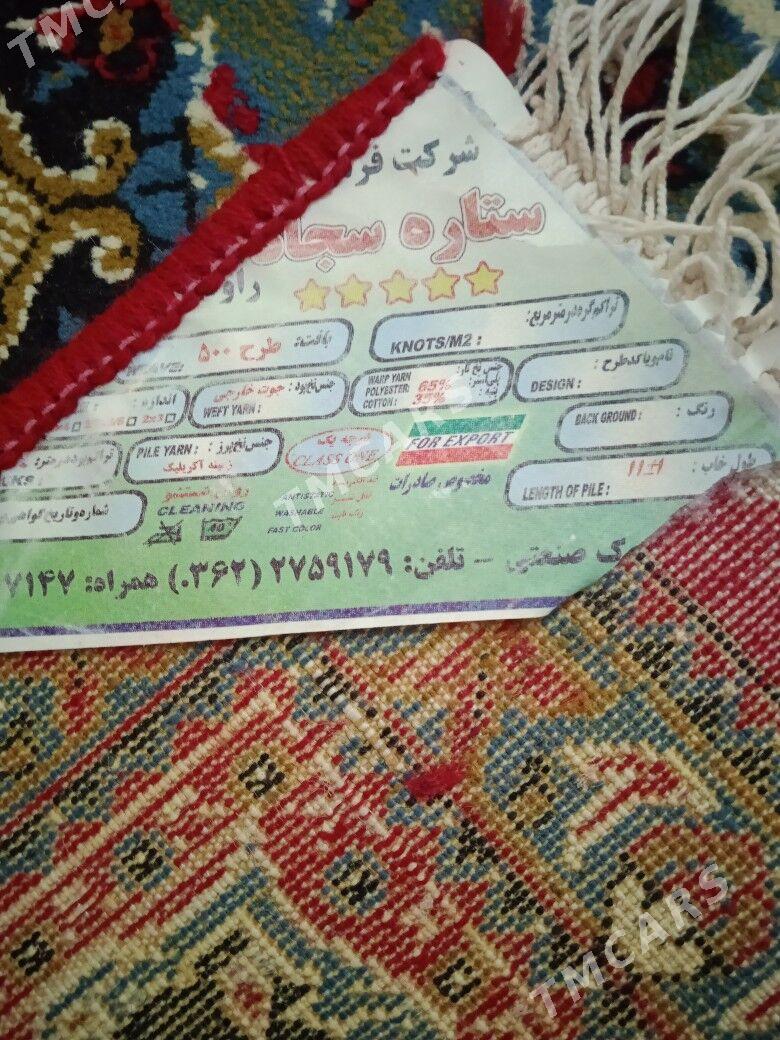 TMCARS
شرکت فر
ستاره سجاد
راو
تراکم گره در متر مربع:
KNOTS/M2 :
بافت: طرح ۵۰۰
WEAVE:
نام و یا کد طرح :
DESIGN :
جنس نخ تار:
WARP YARN
POLYESTER: 65%
COTTON: 35%
جنس نخ پود: جوت خارجی
WEFT YARN :
اندازه :
2x3
رنگ :
BACK GROUND :
FOR EXPORT
مخصوص صادرات
درجه یک
CLASS ONE
جنس نخ پرز :
PILE YARN :
زمینه آکریلیک
طول خاب :
LENGTH OF PILE :
روش شستشو
CLEANING
ANTISTATIC
WASHABLE
FAST COLOR
شماره و تاریخ گواهی
ک صنعتی – تلفن: ۲۷۵۹۱۷۹ (۰۳۶۲) همراه: ۷۱۴۷
TMCARS
TMCARS
TMCARS